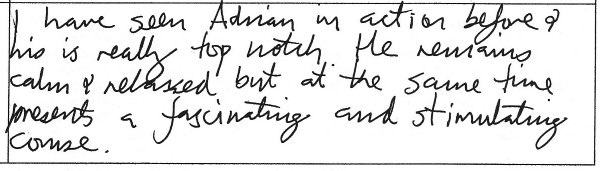 I have seen Adrian in action before &
his is really top notch. He remains
calm & relaxed but at the same time
presents a fascinating and stimulating
course.